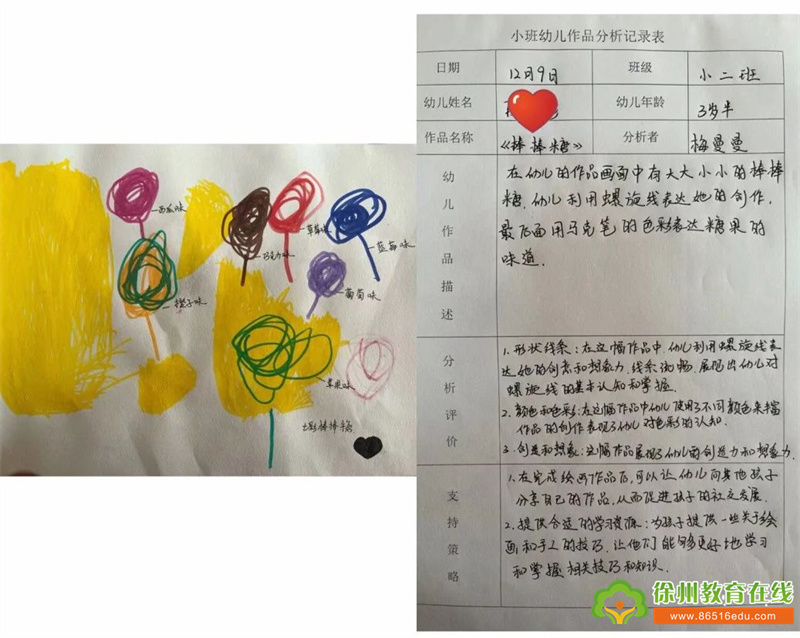 西瓜味
巧克力味
草莓味
蓝莓味
葡萄味
橙子味
苹果味
棒棒糖
小班幼儿作品分析记录表
日期 12月9日 班级 小二班
幼儿姓名 幼儿年龄 3岁半
作品名称 《棒棒糖》 分析者 梅曼曼
幼儿作品描述
在幼儿的作品画面中有大大小小的棒棒
糖,幼儿利用螺旋线表达她的创作,
最后面用马克笔的色彩表达糖果的
味道.
分析评价
1.形状线条:在这幅作品中,幼儿利用螺旋线表
达她的创意和想象力,线条流畅,展现出幼儿对
螺旋线的基本认知和掌握.
2.颜色和色彩:在这幅作品中幼儿使用了不同颜色来丰富
作品的创作表现了幼儿对色彩的认知.
3.创造和想象:这幅作品展现了幼儿的创造力和想象力.
支持策略
1.在完成绘画作品后,可以让幼儿向其他孩子
分享自己的作品,从而促进孩子的社交发展.
2.提供合适的学习资源:为孩子提供一些关于绘
画和手工的技巧,让他们能够更好地学习
和掌握相关技巧和知识.
徐州教育在线
www.86516edu.com